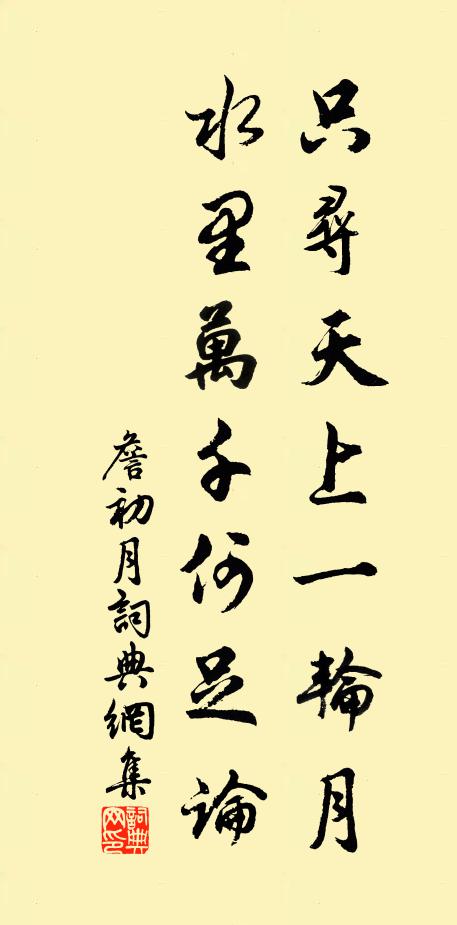 只尋天上一輪月
水里萬千何足論
詹初月詞典網集
詞典网印